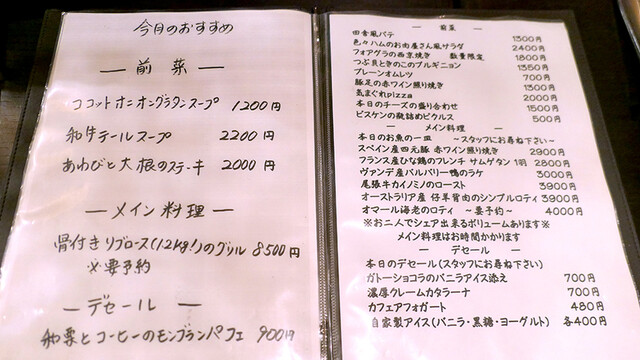 今月のおすすめ
― 前菜 ―
ココットオニオングラタンスープ 1200円
和牛テールスープ 2200円
あわびと大根のステーキ 2000円
― メイン料理 ―
骨付きリブロース(1.2kg!)のグリル 8500円
※要予約
― デセール ―
和栗とコーヒーのモンブランパフェ 900円
― 前菜 ―
田舎風パテ 1300円
色々ハムのお肉屋さん風サラダ 2400円
フォアグラの西京焼き 数量限定 1800円
つぶ貝ときのこのブルギニョン 1350円
プレーンオムレツ 700円
豚足の赤ワイン照り焼き 1300円
気まぐれpizza 2000円
本日のチーズの盛り合わせ 1500円
ビスケンの瓶詰めピクルス 500円
― メイン料理 ―
本日のお魚の一皿 ~スタッフにお尋ね下さい~
スペイン産四元豚 赤ワイン照り焼き 2900円
フランス産ひな鶏のフレンチ サムゲタン 1羽 2800円
ヴァンデ産バルバリー鴨のラケ 3000円
尾張牛カイノミノのロースト 3900円
オーストラリア産 仔羊背肉のシンプルロティ 3900円
オマール海老のロティ ~要予約~ 4000円
※お二人でシェア出来るボリュームあります※
メイン料理はお時間かかります
― デセール ―
本日のデセール(スタッフにお尋ね下さい)
ガトーショコラのバニラアイス添え 700円
濃厚クレームカタラーナ 700円
カフェアフォガート 480円
自家製アイス(バニラ・黒糖・ヨーグルト) 各400円